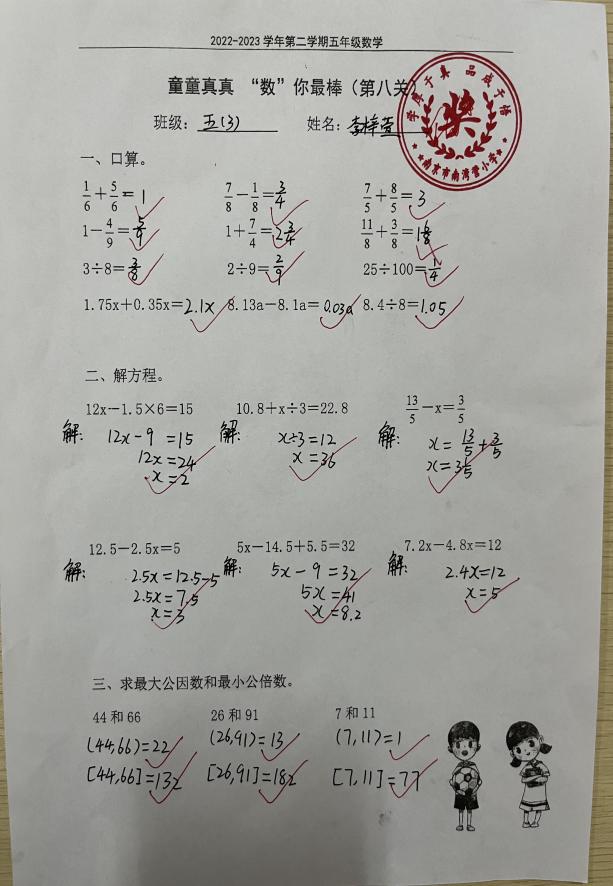 2022-2023 学年第二学期五年级数学
童童真真 “数”你最棒（第八关）
学度于真 品成于悟
奖
南京市南湾营小学
班级： 五(3) 姓名： 李梓萱
一、口算。
1/6+5/6=1 7/8-1/8=3/4 7/5+8/5=3
1-4/9=5/9 1+7/4=2 3/4 11/8+3/8=1 6/8
3÷8=3/8 2÷9=2/9 25÷100=1/4
1.75x+0.35x=2.1x 8.13a-8.1a=0.03a 8.4÷8=1.05
二、解方程。
12x-1.5×6=15 10.8+x÷3=22.8 13/5-x=3/5
解： 12x-9=15 解： x÷3=12 解： x=13/5+3/5
12x=24 x=36 x=3 1/5
x=2
12.5-2.5x=5 5x-14.5+5.5=32 7.2x-4.8x=12
解： 2.5x=12.5-5 解： 5x-9=32 解： 2.4x=12
2.5x=7.5 5x=41 x=5
x=3 x=8.2
三、求最大公因数和最小公倍数。
44 和 66 26 和 91 7 和 11
(44,66)=22 (26,91)=13 (7,11)=1
[44,66]=132 [26,91]=182 [7,11]=77